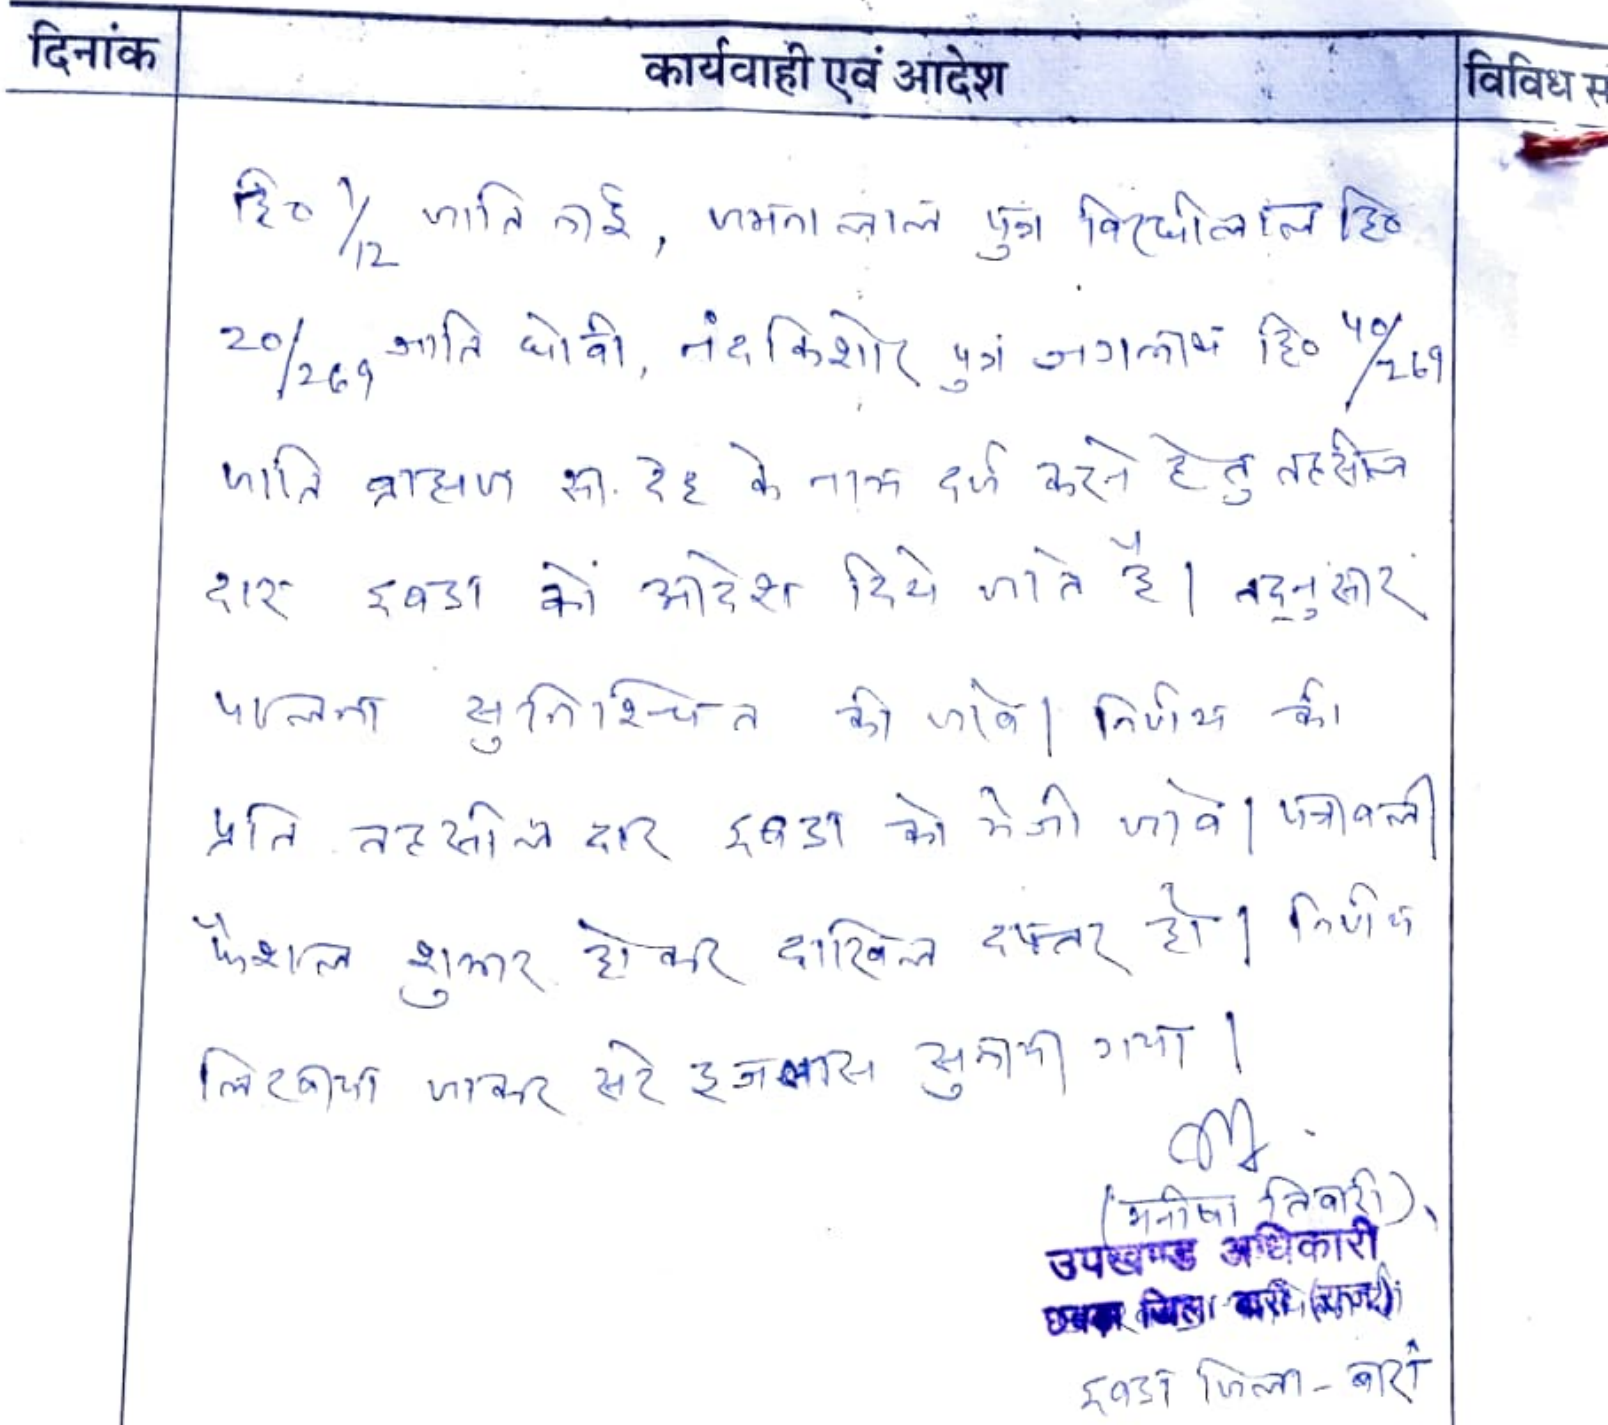 दिनांक
कार्यवाही एवं आदेश
विविध
हि० 1/12 जाति नाई, जमनालाल पुत्र बिरधीलाल हि०
20/269 जाति धोबी, नंदकिशोर पुत्र जगन्नाथ हि० 40/269
जाति ब्राह्मण सा. देह के नाम दर्ज करने हेतु तहसील
दार छबडा को आदेश दिये जाते है। तद्नुसार
पालना सुनिश्चित की जावे। निर्णय की
प्रति तहसीलदार छबडा को भेजी जावे। पत्रावली
फैशल शुमार होकर दाखिल दफ्तर हो। निर्णय
लिखाया जाकर सरे इजलास सुनाया गया।
(मनीषा तिवारी)
उपखण्ड अधिकारी
छबडा जिला बारां (राज०)
छबडा जिला - बारां